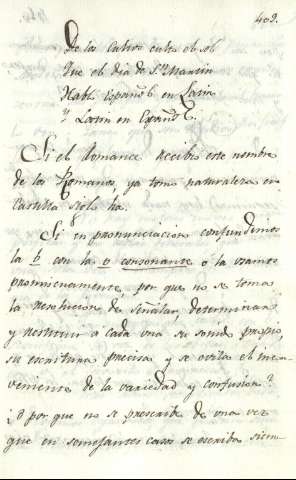 409.
De los
el
que el dia de Sn. Martin
Habló Español en Latin
y Latin en Español.
Si el Romance recibio este nombre
de los Romanos, ya tomó naturaleza en
Castilla siglos ha.
Si en pronunciacion confundimos
la b con la v consonante o la usamos
promiscuamente, por que no se toma
la resolucion de señalar, determinar
y restituir a cada una su sonido propio,
su escritura precisa y se evita el incon-
veniente de la variedad y confusion?
¿O por que no se prescribe de una vez
que en semejantes casos se escriba siem-